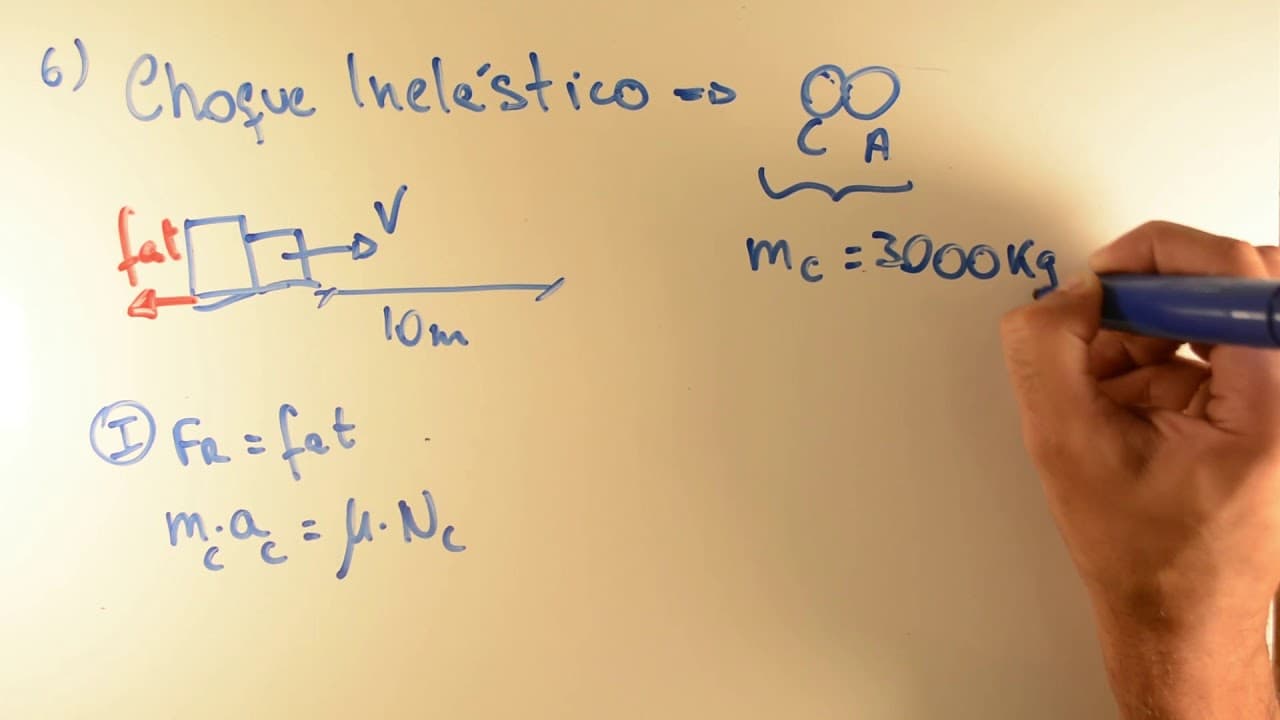 6) Choque Inelástico =>
C A
fat V
mc = 3000Kg
10m
I FR = fat
mc.ac = μ.Nc